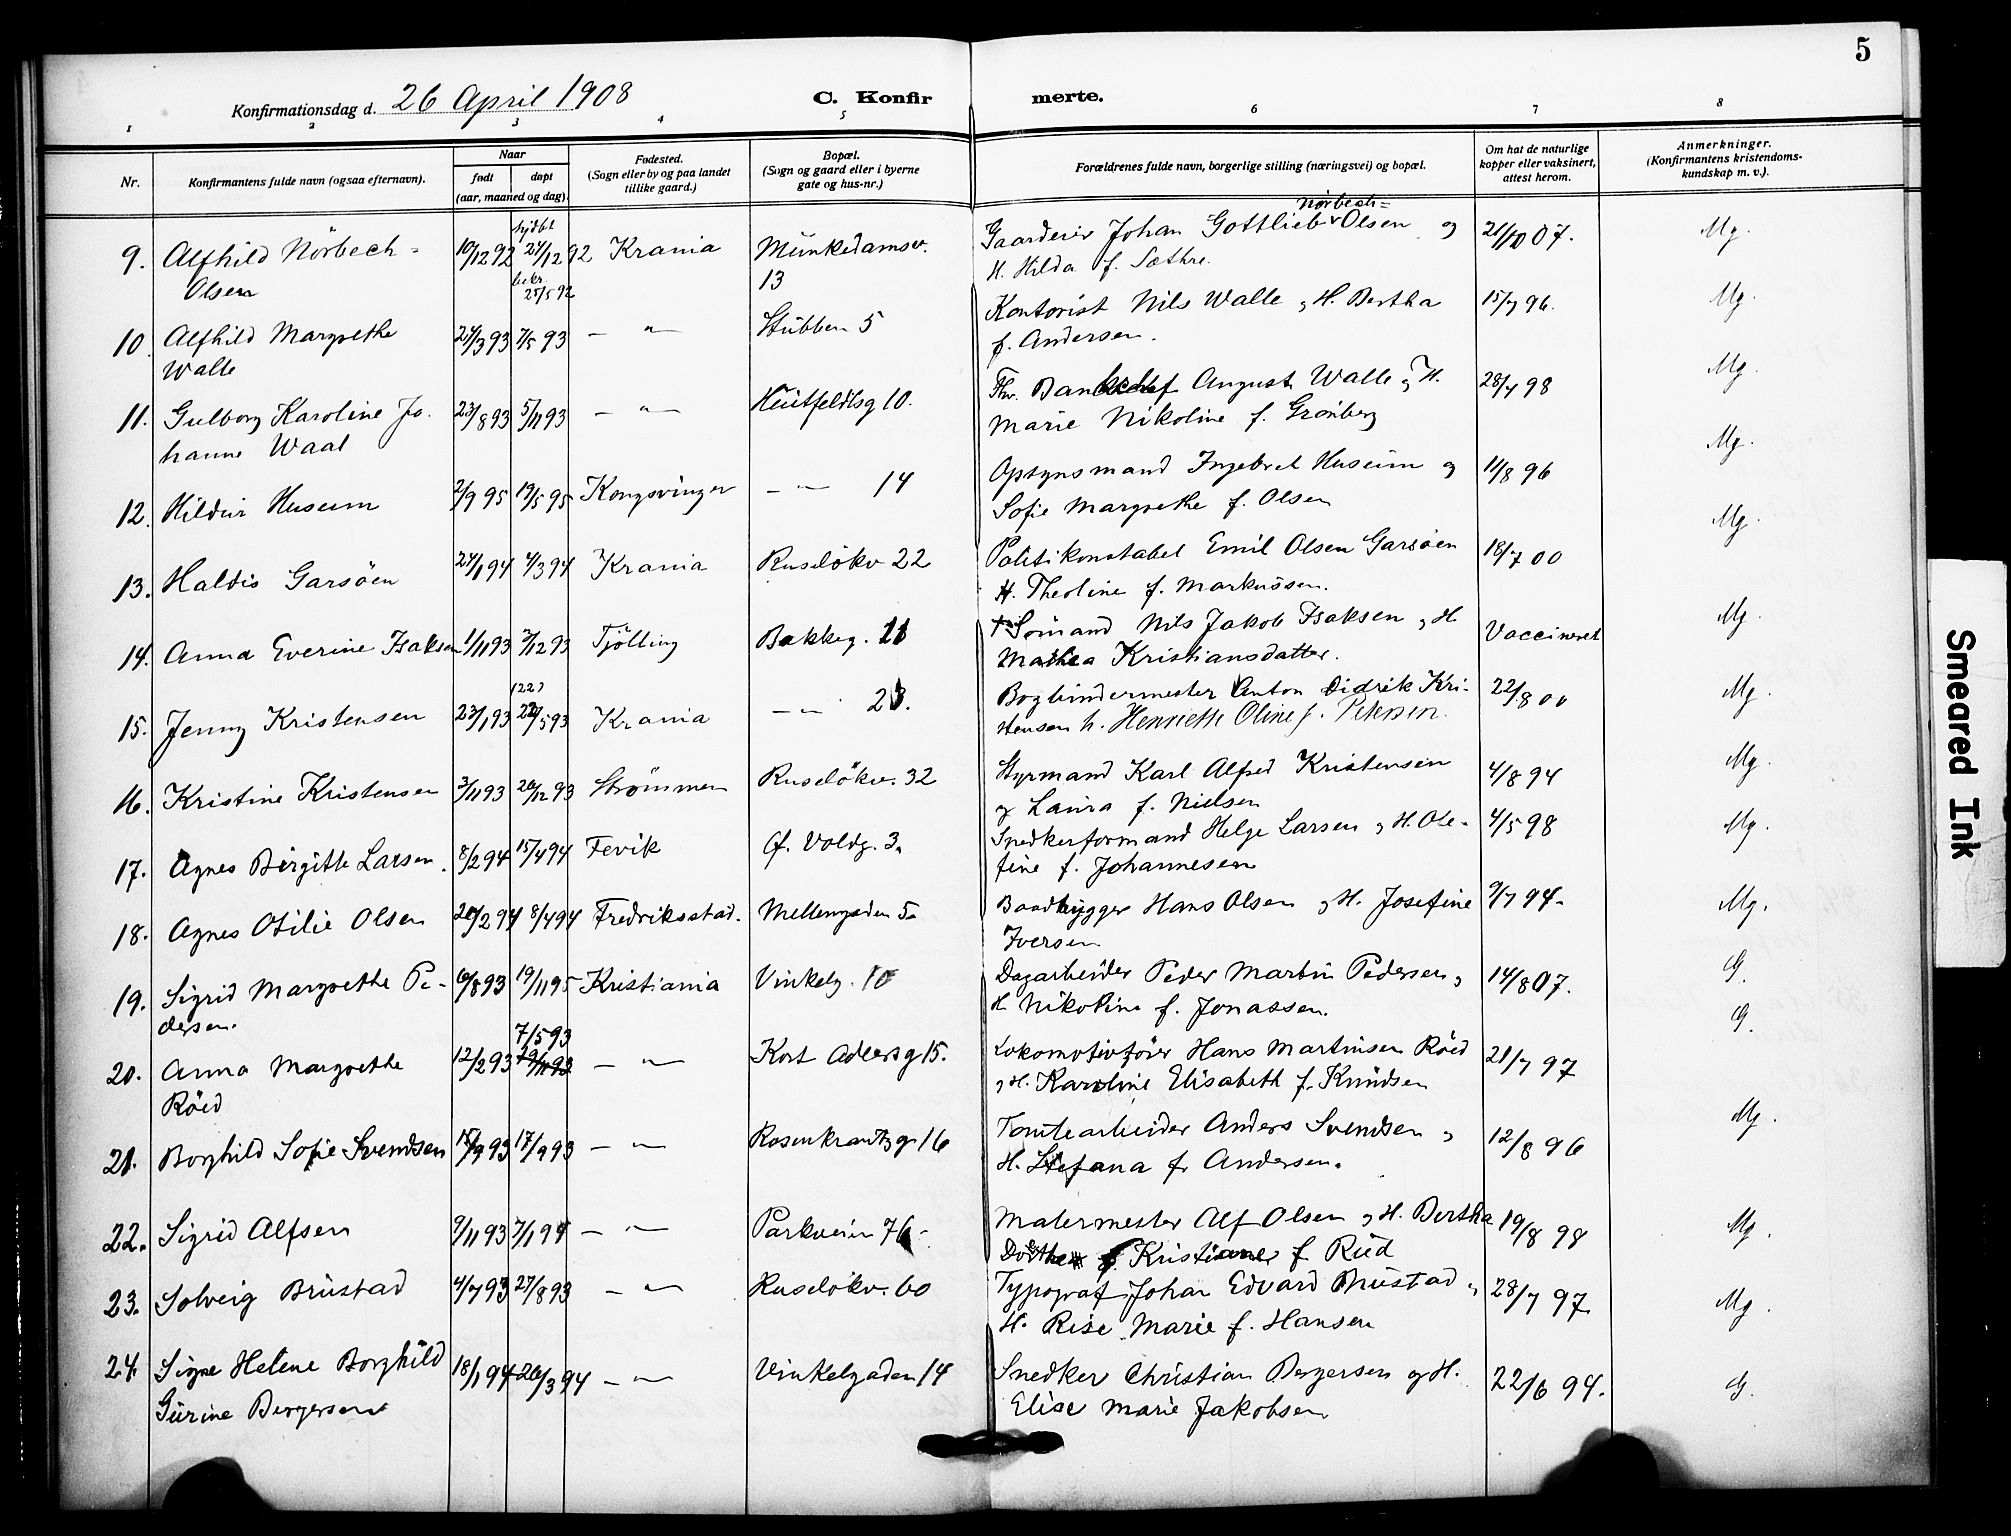 5
Konfirmationsdag d. 26 April 1908
C. Konfirmerte.
1 2 3 4 5 6 7 8
Nr.
Konfirmantens fulde navn (ogsaa efternavn).
Naar
født døpt
(aar, maaned og dag).
Fødested.
(Sogn eller by og paa landet
tillike gaard.)
Bopæl.
(Sogn og gaard eller i byerne
gate og hus-nr.)
Forældrenes fulde navn, borgerlige stilling (næringsvei) og bopæl.
Om hat de naturlige
kopper eller vaksinert,
attest herom.
Anmerkninger.
(Konfirmantens kristendoms-
kundskap m. v.).
9. Alfhild Nörbech- 10/12 92 hjdbt 21/12 92 Krania Munkedamsv. Gaardeier Johan Gottlieb Nörbech- Olsen og 21/10 07. Mg.
Olsen 25/5 92 13 H. Hilda f. Sæthre.
10. Alfhild Margrethe 24/3 93 7/5 93 — " — Stubben 5 Kontorist Nils Walle og H. Bertha 15/7 96. Mg.
Walle f. Andersen.
11. Gulborg Karoline Jo- 23/8 93 5/11 93 — " — Huitfeldtsg 10. August Walle og H. 28/7 98 Mg.
hanne Waal Marie Nikoline f. Grønberg
12. Hildur Huseum 2/9 95 19/5 95 Kongsvinger — " — 14 Opsynsmand Ingebret Huseum og 11/8 96 Mg.
Sofie Margrethe f. Olsen
13. Haldis Garsöen 24/1 94 4/3 94 Krania Ruselökv 22 Politikonstabel Emil Olsen Garsöen 18/7 00 Mg.
H. Theoline f. Markussen.
14. Anna Everine Isaksen 1/11 93 3/12 93 Tjölling Bakkeg. 11 Sömand Nils Jakob Isaksen og H Vaccineret Mg.
Mathea Kristiansdatter.
15. Jenny Kristensen 23/1 93 (22) 22/5 93 Krania — " — 23. Bogbindermester Anton Didrik Kri- 22/8 00 Mg.
stensen h. Henriette Oline f. Petersen.
16. Kristine Kristensen 3/11 93 26/12 93 Strömmen Ruselökv. 32 Styrmand Karl Alfred Kristensen 4/8 94 Mg.
og Laura f. Nielsen
17. Agnes Birgitte Larsen. 8/2 94 15/4 94 Fevik Cf. Voldg. 3. Snedkerformand Helge Larsen og H. Ole- 4/5 98 Mg.
fine f. Johannesen
18. Agnes Otilie Olsen 20/2 94 8/4 94 Fredriksstad. Mellemgaden 5 Baadbygger Hans Olsen og H. Josefine 9/7 94. Mg.
Iversen
19. Sigrid Margrethe Pe- 6/8 93 19/11 95 Kristiania Vinkelg. 10 Dagarbeider Peder Martin Pedersen og 14/8 07. G.
dersen. H. Nikoline f. Jonassen.
20. Anna Margrethe 12/2 93 7/5 93 — " — Kort Adlersg 15. Lokomotivfører Hans Martinsen Röed 21/7 97 G.
Röed og H. Karoline Elisabeth f. Knudsen
21. Borghild Sofie Svendsen 15/9 93 17/9 93 — " — Rosenkrantzg 16 Tomtearbeider Anders Svendsen og 12/8 96 Mg.
H. Stefana f. Andersen.
22. Sigrid Alfsen 9/11 93 7/1 94 — " — Parkveien 76 Malermester Alf Olsen og H. Bertha 19/8 98 Mg.
Dorthea Kristiane f Rud
23. Solveig Brustad 4/7 93 27/8 93 — " — Ruselökv. 60 Typograf Johan Edvard Brustad og 28/7 97. Mg.
H. Rise Marie f. Hansen
24. Signe Helene Borghild 18/1 94 26/3 94 — " — Vinkelgaden 14 Snedker Christian Bergersen og H. 22/6 94. G.
Gurine Bergersen Elise Marie Jakobsen
Smeared Ink